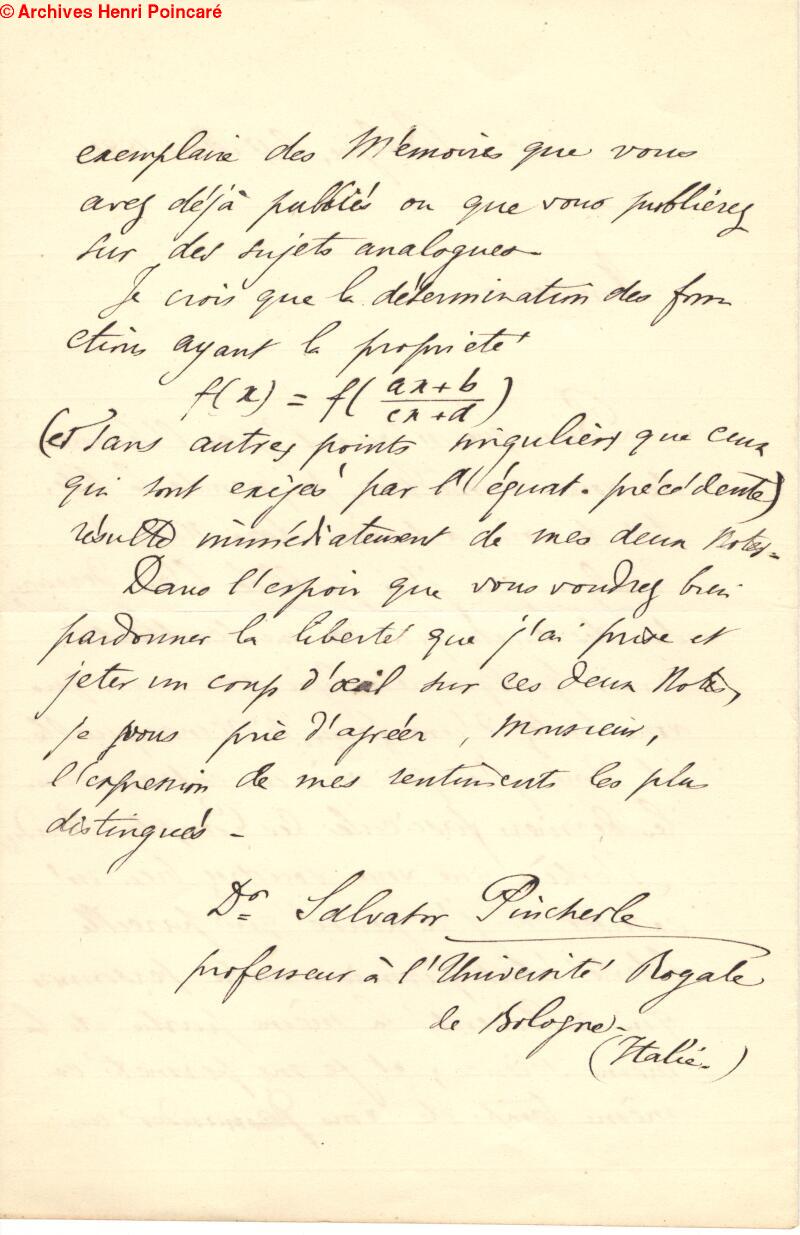 © Archives Henri Poincaré
exemplaire des Mémoires que vous
avez déjà publiés ou que vous publierez
sur des sujets analogues.
Je crois que la détermination des fonc
ctions ayant la propriété
f(x) = f((ax+b)/(cx+d))
(et sans autres points singuliers que ceux
qui sont exigés par l'équat. précédente)
résulte immédiatement de mes deux Notes.
Dans l'espoir que vous voudrez bien
pardonner la liberté que j'ai prise et
jeter un coup d'œil sur ces deux Notes,
je vous prie d'agréer, Monsieur,
l'expression de mes sentiments les plus
distingués -
Dr. Salvator Pincherle
professeur à l'Université Royale
de Bologne.
(Italie.)